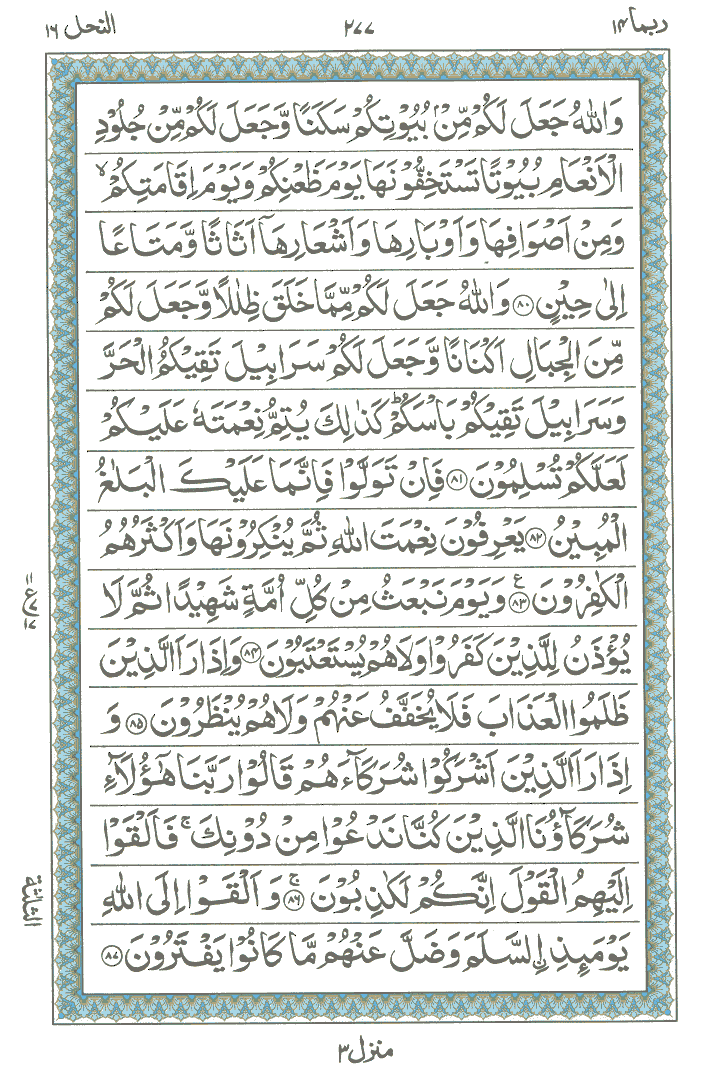 ربما ١٤
٢٧٧
النحل ١٦
وَاللّٰهُ جَعَلَ لَكُمْ مِّنْۢ بُيُوْتِكُمْ سَكَنًا وَّجَعَلَ لَكُمْ مِّنْ جُلُوْدِ
الْاَنْعَامِ بُيُوْتًا تَسْتَخِفُّوْنَهَا يَوْمَ ظَعْنِكُمْ وَيَوْمَ اِقَامَتِكُمْ ۙ
وَمِنْ اَصْوَافِهَا وَاَوْبَارِهَا وَاَشْعَارِهَاۤ اَثَاثًا وَّمَتَاعًا
اِلٰى حِيْنٍ ﴿٨٠﴾ وَاللّٰهُ جَعَلَ لَكُمْ مِّمَّا خَلَقَ ظِلٰلًا وَّجَعَلَ لَكُمْ
مِّنَ الْجِبَالِ اَكْنَانًا وَّجَعَلَ لَكُمْ سَرَابِيْلَ تَقِيْكُمُ الْحَرَّ
وَسَرَابِيْلَ تَقِيْكُمْ بَاْسَكُمْ ؕ كَذٰلِكَ يُتِمُّ نِعْمَتَهٗ عَلَيْكُمْ
لَعَلَّكُمْ تُسْلِمُوْنَ ﴿٨١﴾ فَاِنْ تَوَلَّوْا فَاِنَّمَا عَلَيْكَ الْبَلٰغُ
الْمُبِيْنُ ﴿٨٢﴾ يَعْرِفُوْنَ نِعْمَتَ اللّٰهِ ثُمَّ يُنْكِرُوْنَهَا وَاَكْثَرُهُمُ
الْكٰفِرُوْنَ ﴿٨٣﴾ ع وَيَوْمَ نَبْعَثُ مِنْ كُلِّ اُمَّةٍ شَهِيْدًا ثُمَّ لَا
يُؤْذَنُ لِلَّذِيْنَ كَفَرُوْا وَلَا هُمْ يُسْتَعْتَبُوْنَ ﴿٨٤﴾ وَاِذَا رَاَ الَّذِيْنَ
ظَلَمُوا الْعَذَابَ فَلَا يُخَفَّفُ عَنْهُمْ وَلَا هُمْ يُنْظَرُوْنَ ﴿٨٥﴾ وَ
اِذَا رَاَ الَّذِيْنَ اَشْرَكُوْا شُرَكَآءَهُمْ قَالُوْا رَبَّنَا هٰٓؤُلَآءِ
شُرَكَآؤُنَا الَّذِيْنَ كُنَّا نَدْعُوْا مِنْ دُوْنِكَ ۚ فَاَلْقَوْا
اِلَيْهِمُ الْقَوْلَ اِنَّكُمْ لَكٰذِبُوْنَ ﴿٨٦﴾ ۚ وَاَلْقَوْا اِلَى اللّٰهِ
يَوْمَئِذِ ۨالسَّلَمَ وَضَلَّ عَنْهُمْ مَّا كَانُوْا يَفْتَرُوْنَ ﴿٨٧﴾
الثلثة
منزل ٣